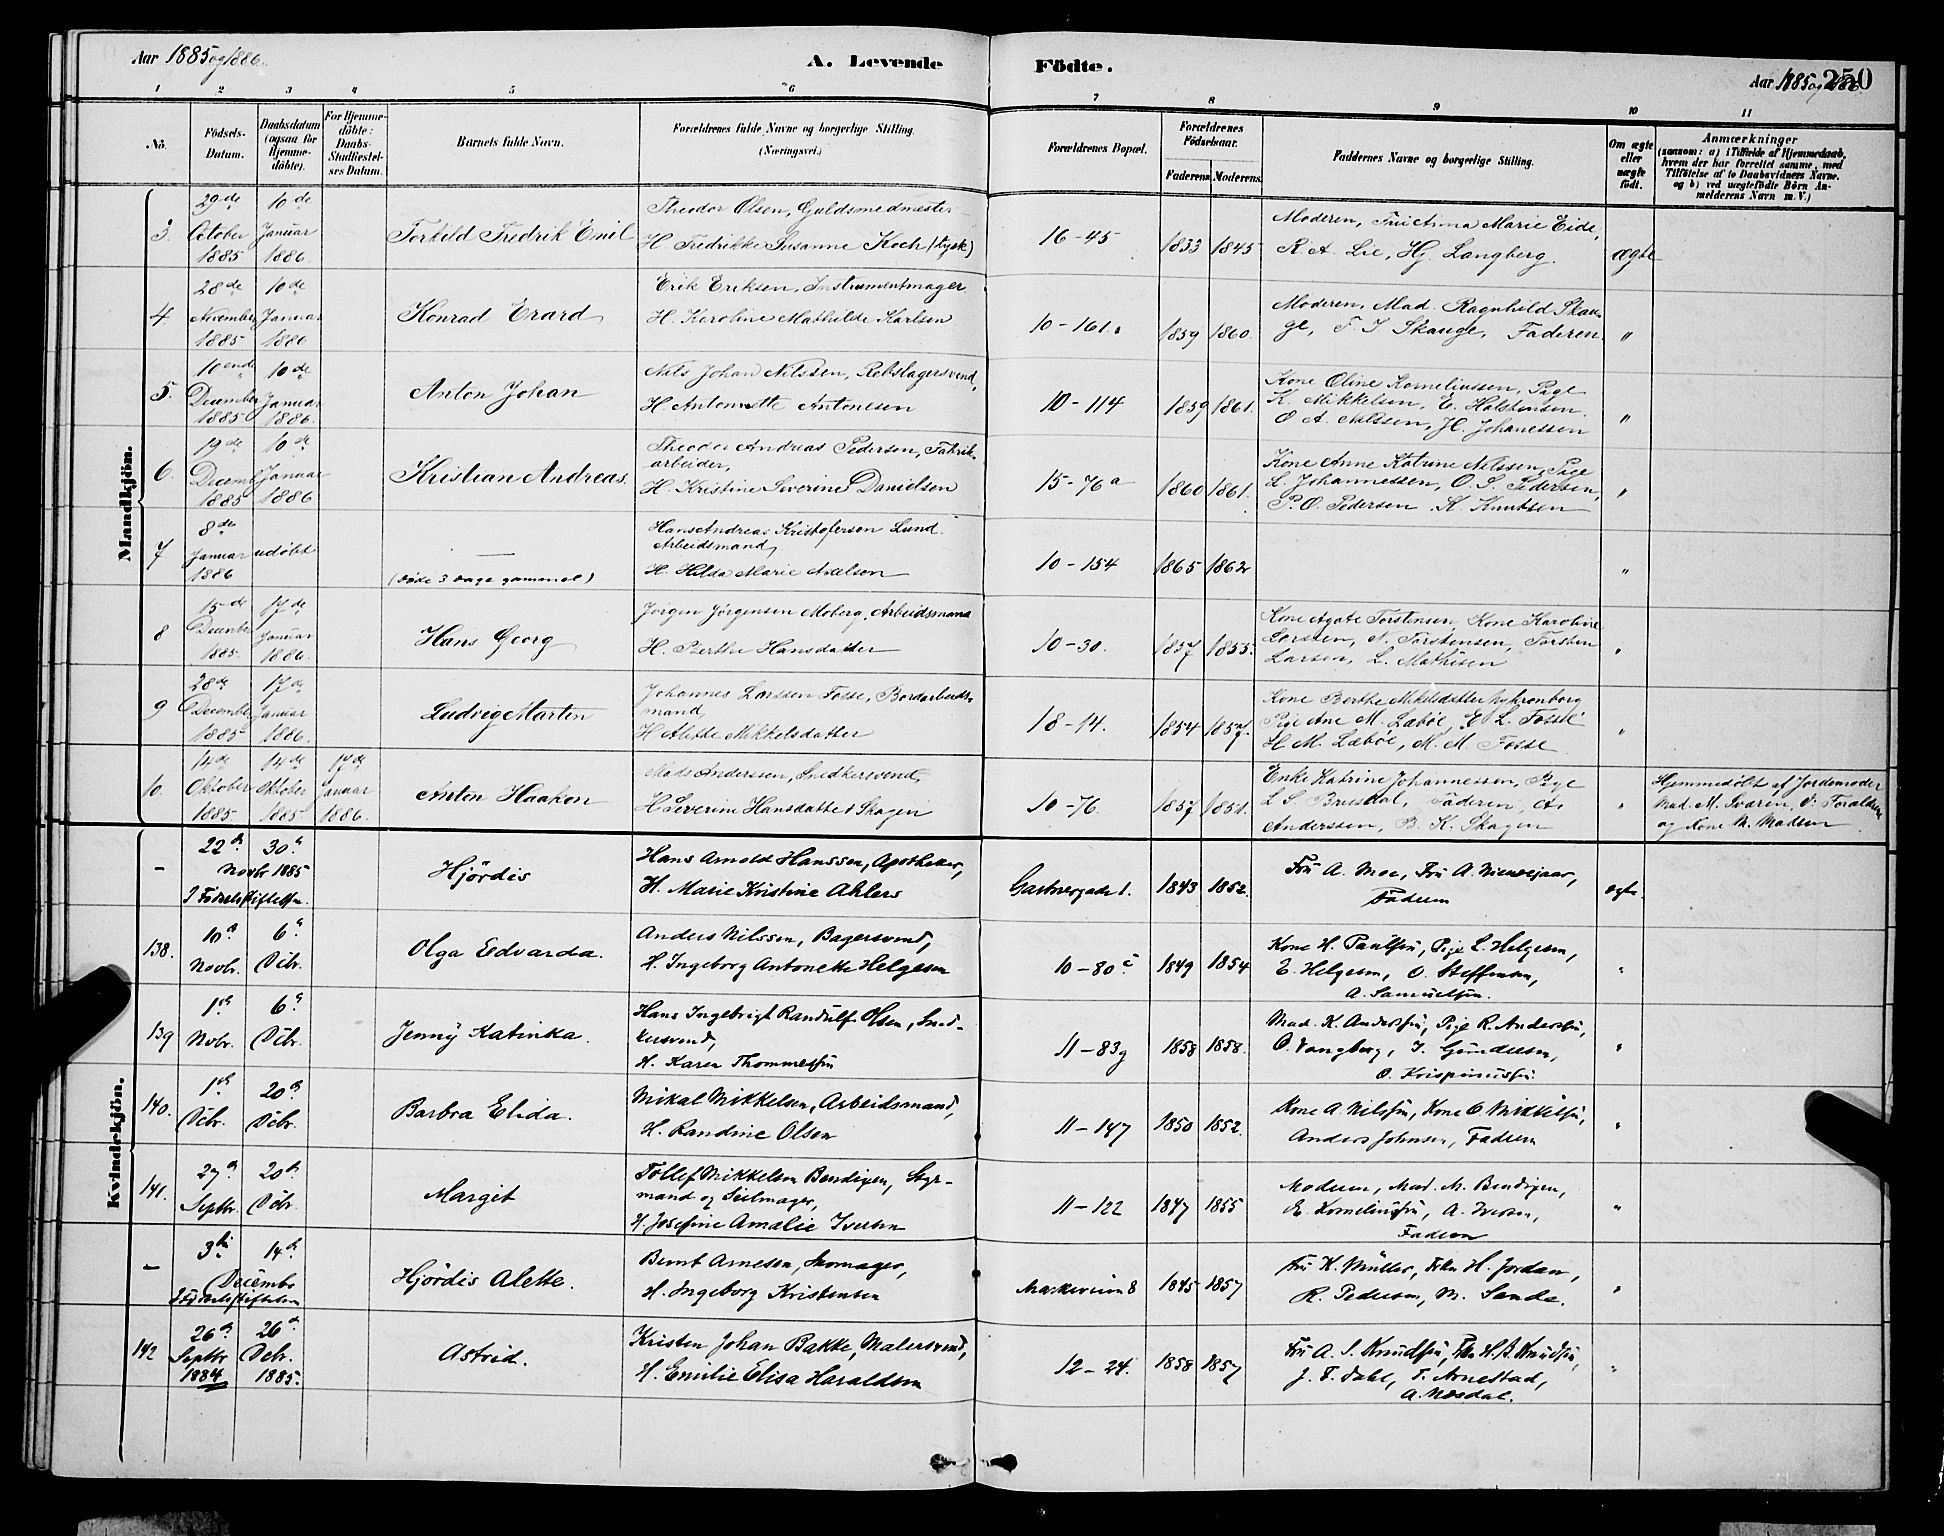 Aar 1885 og 1886.
A. Levende Födte.
Aar 1885 og 1886.
250
1 2 3 4 5 6 7 8 9 10 11
No.
Födsels-Datum.
Daabsdatum (ogsaa for Hjemme-döbte).
For Hjemme-döbte: Daabs-Stadfæstel-ses Datum.
Barnets fulde Navn.
Forældrenes fulde Navne og borgerlige Stilling. (Næringsvei.)
Forældrenes Bopæl.
Forældrenes Födselsaar.
Faderens Moderens
Faddernes Navne og borgerlige Stilling.
Om ægte eller uægte födt.
Anmærkninger
(saasom: a) i Tilfælde af Hjemmedaab, hvem der har forrettet samme, med Tilföielse af to Daabsvidners Navne. og b) ved uægtefödte Börn An-melderens Navn m. V.)
Mandkjön.
3. 29de October 1885 10de Januar 1886. Torkild Fredrik Emil
Theodor Olsen, Guldsmedmester
H. Fredrikke Susanne Koch (tysk)
16-45 1833 1845
Moderen, Fru Anna Marie Eide,
R. A. Lie, Hj. Langberg. ægte
4 28de November 1885 10de Januar 1886 Konrad Erard
Erik Eriksen, Instrumentmager
H. Karoline Mathilde Karlsen
10-161. 1859 1860.
Moderen, Mad. Ragnhild Skau-
ge, T. J. Skauge, Faderen. "
5. 10ende December 1885 10de Januar 1886. Anton Johan
Nils Johan Nilssen, Rebslagersvend,
H. Antonette Antonesen
10-114 1859 1861.
Kone Oline Korneliussen, Pige
K. Mikkelsen, E. Halstensen.
O A. Nilssen, H. Johanessen "
6. 19de Decemb 1885 10de Januar 1886 Kristian Andreas.
Theodor Andreas Pedersen, Fabrik-
arbeider,
H. Kristine Severine Danielsen
15-76a 1860 1861.
Kone Anne Katrine Nilssen, Pige
L. Johannessen, O. S. Pedersen,
P. O. Pedersen K. Knutsen "
7 8de Januar 1886 udöbt —
(döde 3 Dage gammel)
Hans Andreas Kristofersen Lund.
Arbeidsmand,
H. Hilda Marie Axelsen
10-154 1865 1862 "
8 15de December 1885. 17de Januar 1886. Hans Georg
Jörgen Jörgensen Moberg, Arbeidsmand
H. Berthe Hansdatter
10-30. 1857 1855.
Kone Agate Torstensen, Kone Karoline
Larssen, N. Torstensen, Torsten
Larsen, L. Mathisen "
9 28de December 1885 17de Januar 1886. Ludvig Martin
Johannes Larssen Fosse, Bordarbeids-
mand,
H. Alette Mikkelsdatter
18-14. 1854 1857.
Kone Berthe Mikelsdatter Nykronborg
Pige Ane M. Læböe, E L. Fosse
H M. Læböe, M. M Fosse "
10. 14de Oktober 1885 14de Oktober 1885 17de Januar 1886. Anton Haakon
Mads Anderssen, Snedkersvend,
H Severine Hansdatter Skagen
10-76. 1857 1851.
Enke Katrine Johannessen, Pige
L S. Brusdal, Faderen, A.
Anderssen, B. K. Skagen "
Hjemmedöbt af Jordemoder
Mad. M. Svaren,
og Kone M. Madsen
Kvindekjön.
— 22d 30d Novbr 1885 I Födselsstiftelsen. Hjördis
Hans Arnold Hanssen, Apotheker,
H. Marie Kristine Ahlers
1. 1843 1852.
Fru A. Moe, Fru A. Nicolaysen,
Faderen ægte.
138. 10d Novbr. 6d Dcbr. Olga Edvarda.
Anders Nilssen, Bagersvend,
H. Ingeborg Antonette Helgesen
10-80c 1849 1854
Kone H. Paulsen, Pige L. Helgesen,
E. Helgesen, O. Steffensen,
A. Samuelsen. "
139 1ste Novbr. 6d Dcbr. Jenny Katinka.
Hans Ingebrigt Randulf Olsen, Sned-
kersvend,
H. Karen Thommessen
11-83g 1858 1858.
Mad. K. Andersen, Pige R. Andersen,
O. Vangberg, J. Gundersen,
O. Krispinussen "
140. 1ste Dcbr. 20d Dcbr. Barbra Elida.
Mikal Mikkelsen, Arbeidsmand,
H. Randine Olsen
11-147 1850 1852.
Kone A. Nilsen, Kone O Mikkelsen,
Anders Johnsen, Faderen "
141. 27d Septbr. 20d Dcbr. Margit
Tollef Mikkelsen Bendixen, Styr-
mand og Seilmager,
H. Josefine Amalie Iversen
11-122 1847 1855
Moderen, Mad. M. Bendixen,
E. Korneliussen, A. Iversen,
Faderen "
— 3die 14d Decembr I Födselsstiftelsen Hjördis Alette.
Bernt Arnesen, Skomager,
H. Ingeborg Kristensen
Markeveien 8 1845 1857
Fru K. Müller, Frkn H. Jordan,
R. Pedersen, M. Sande. "
142 26d Septbr 1884 26d Dcbr. 1885. Astrid.
Kristen Johan Bakke, Malersvend,
H. Emilie Elisa Haraldsen
12-24. 1858 1857
Fru A. S. Knudsen, Frk H. B. Knudsen,
J. F. Dahl, T. Arnestad,
A. Mosdal. "